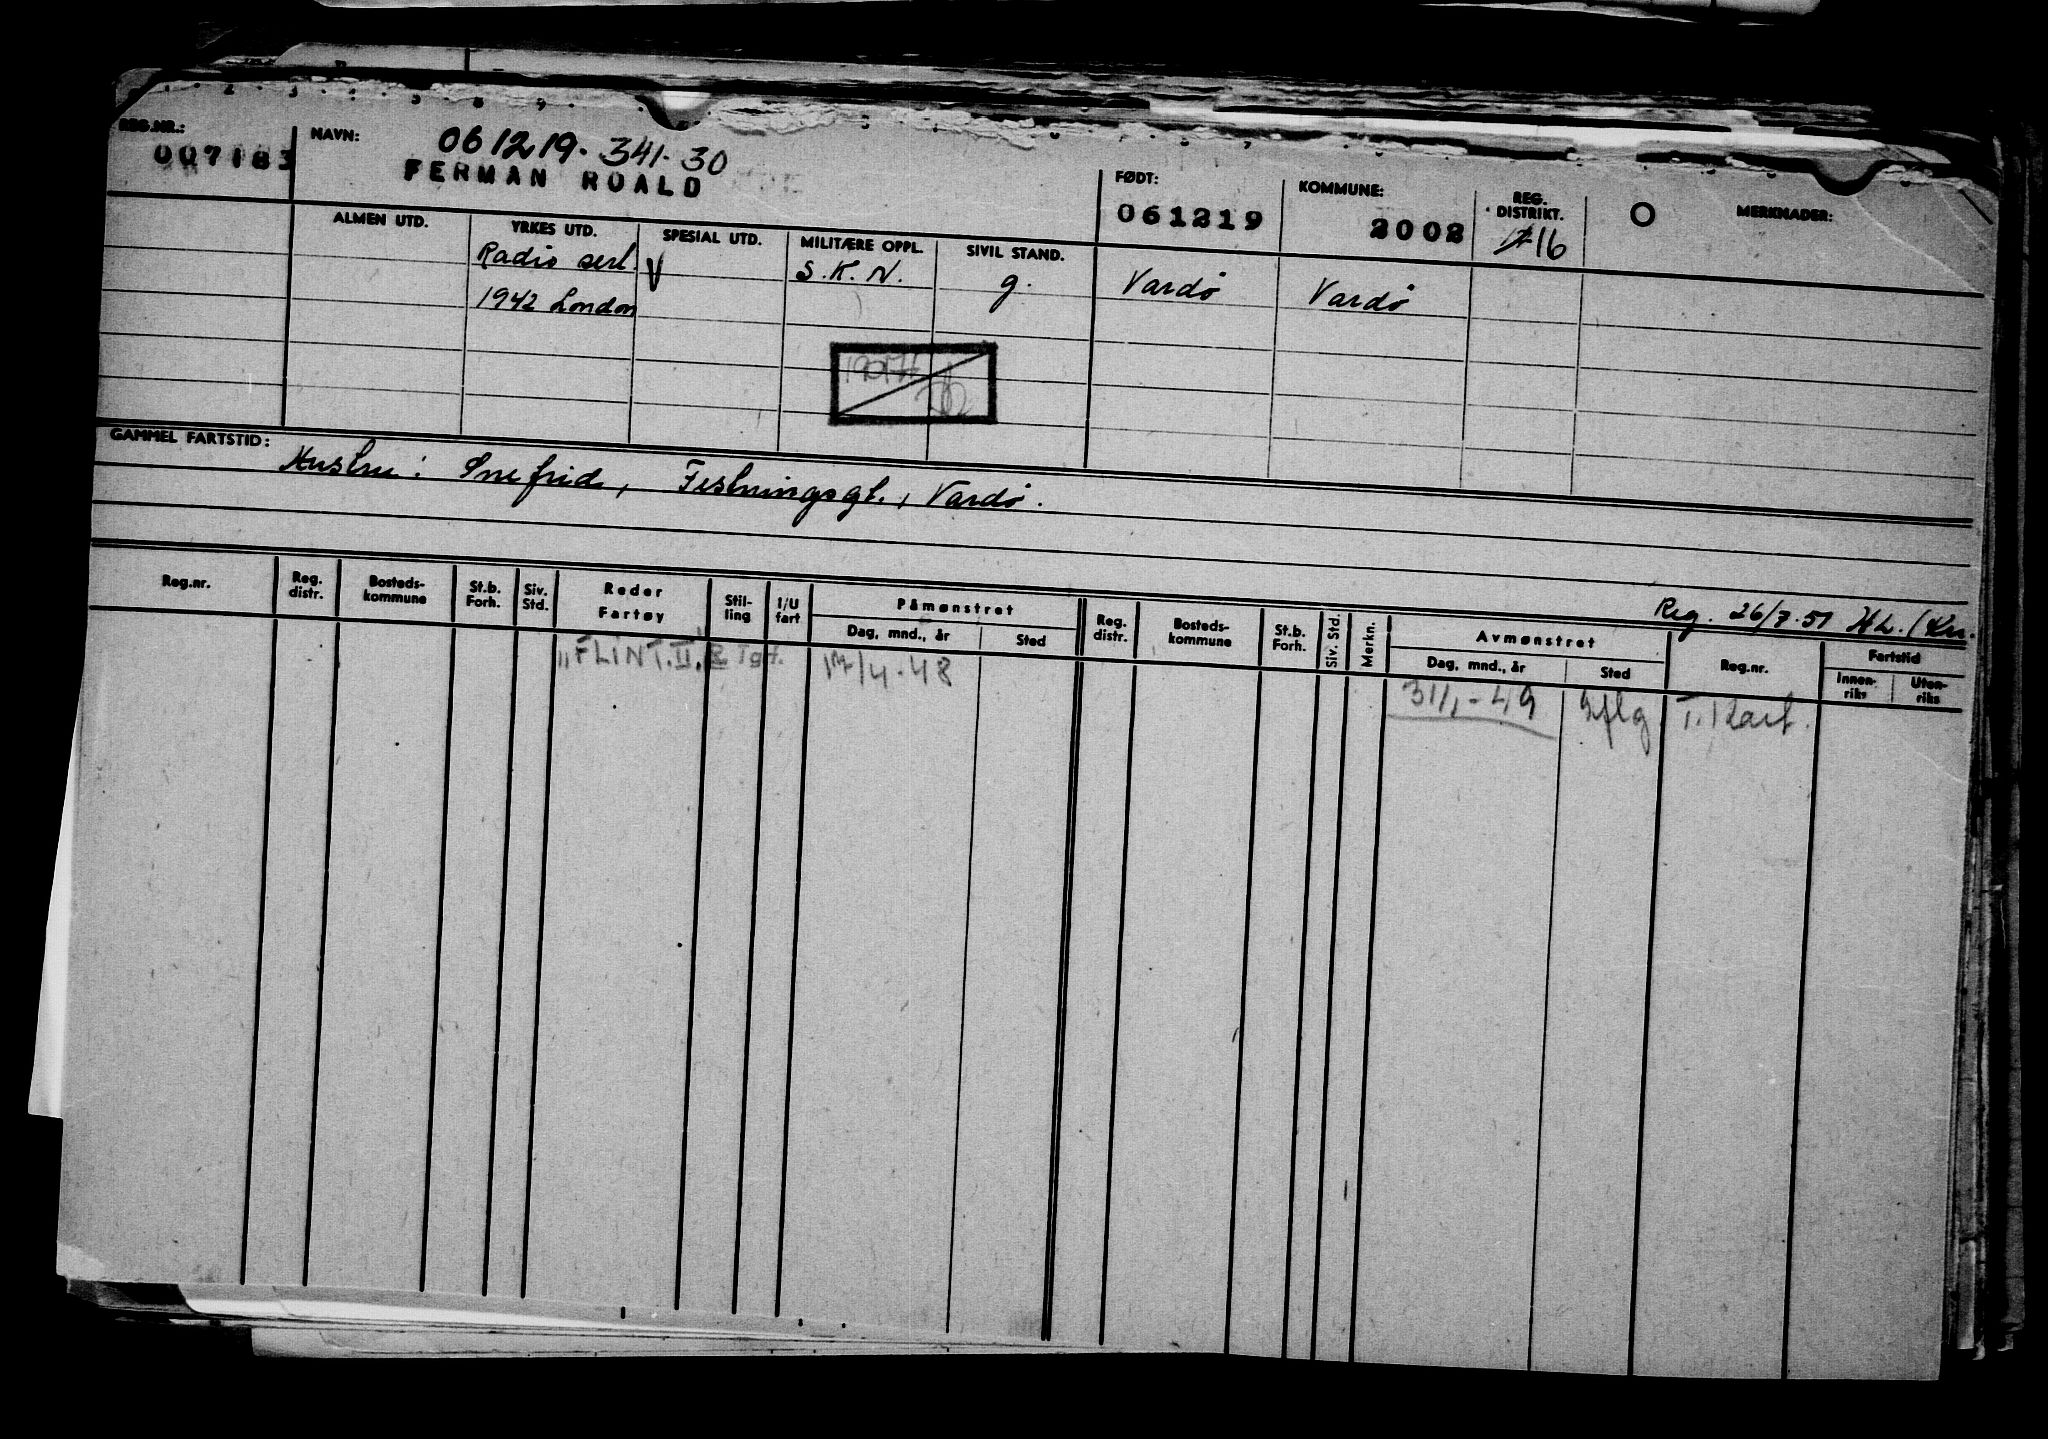 REG.NR.: 007183
NAVN: 061219. 341. 30
FERMAN ROALD
FØDT: 061219
KOMMUNE: 2002
REG. DISTRIKT. 16
MERKNADER:
ALMEN UTD. YRKES UTD. SPESIAL UTD. MILITÆRE OPPL. SIVIL STAND.
Radio sert. V S.K.N. g. Vardø Vardø
1942 London
GAMMEL FARTSTID:
Hustru: Snefrid, Festningsgt., Vardø.
Reg. 26/7.51 HL.
Reg.nr. Reg. distr. Bosteds-kommune St.b. Forh. Siv. Std. Reder Fartøy Stil-ling I/U fart Påmønstret Reg. distr. Bosteds-kommune St.b. Forh. Siv. Std. Merkn. Avmønstret Reg.nr. Fartstid
Dag, mnd., år Sted Dag, mnd., år Sted Innen-riks Uten-riks
"FLINT.II." 17/4-48 31/1-49 T.kart.